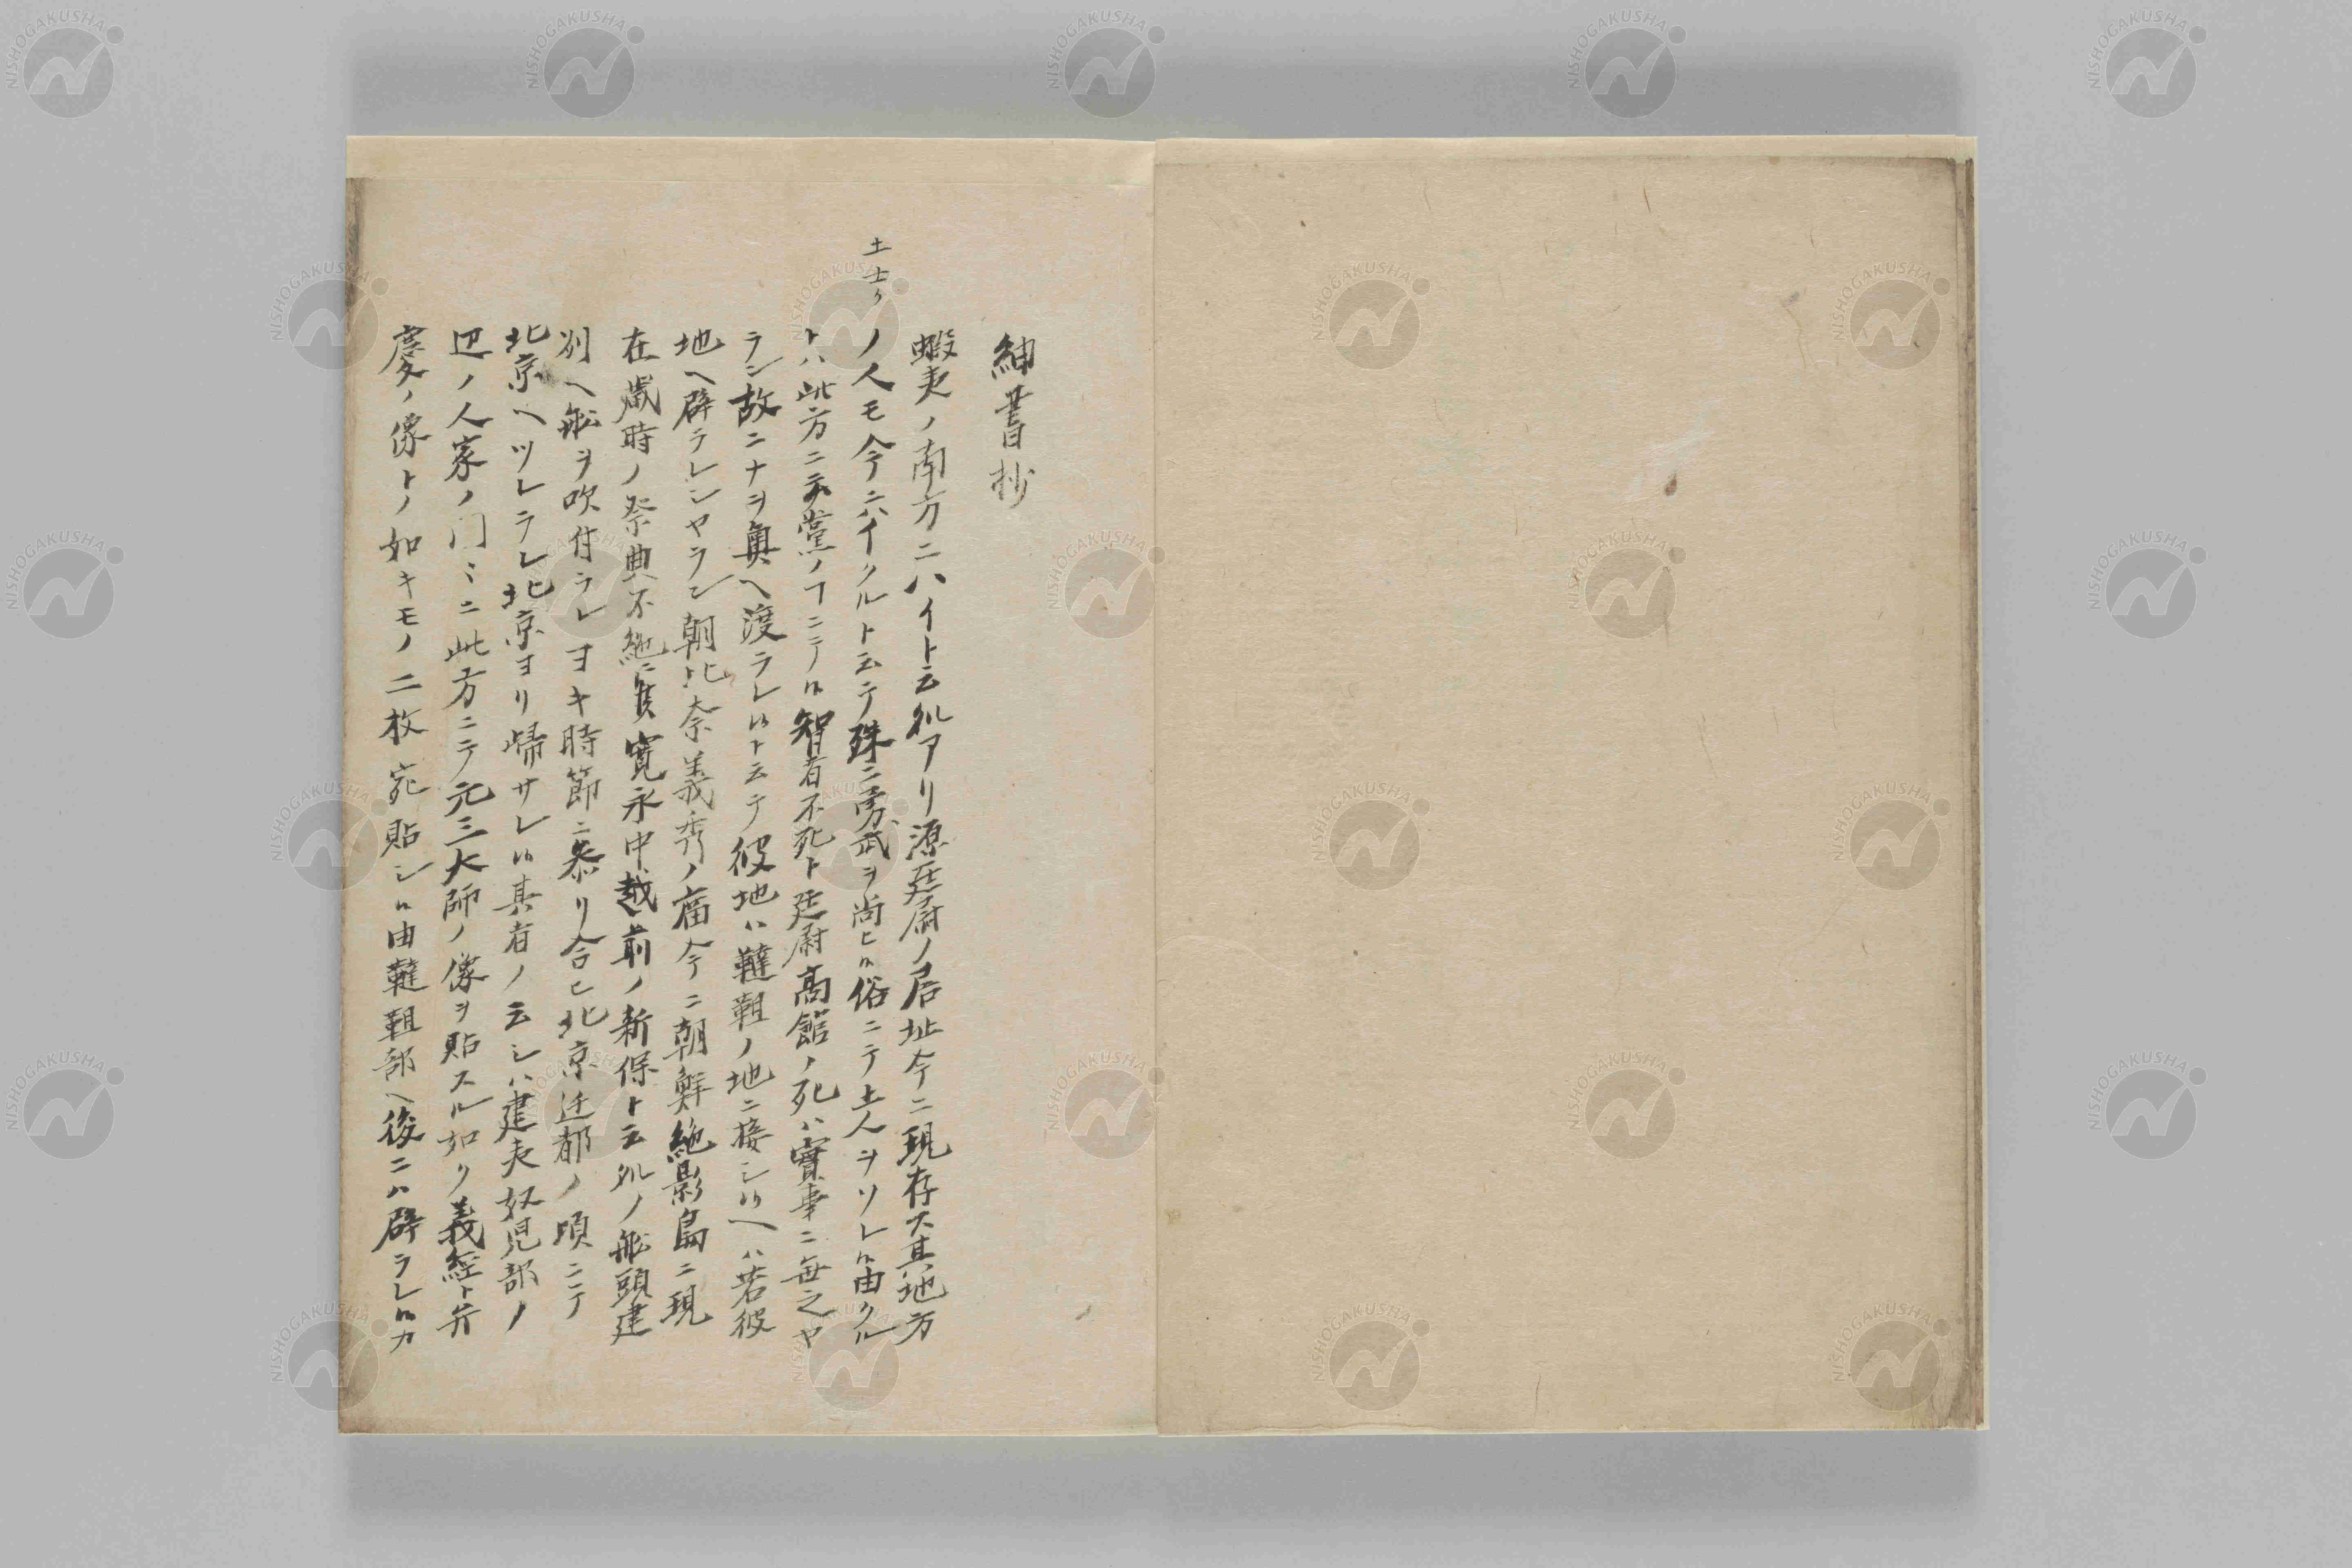 紳書抄
蝦夷ノ南方ニハイト云処アリ源廷尉ノ居址今ニ現存ス其地方
土士カ
ノ人モ今ニハイクルト云テ殊ニ勇武ヲ尚ヒ候俗ニテ土人ヲソレ候由クル
トハ此方ニ云党ノヿニテ候智者不死ト廷尉高舘ノ死ハ實事ニ毎之ヤ
ラン故ニナヲ奥ヘ渡ラレ候ト云テ彼地ハ韃靼ノ地ニ接シ候ヘハ若彼
地ヘ辟ラレシヤラン朝比奈義秀ノ庿今ニ朝鮮絶影島ニ現
在歳時ノ祭典不絶ニ候寛永中越前ノ新保ト云処ノ舩頭建
列ヘ舩ヲ吹付ラレヨキ時節ニ参リ合ヒ北京迁都ノ頃ニテ
北京ヘツレラレ北京ヨリ帰サレ候其者ノ云シハ建夷奴児部ノ
辺ノ人家ノ門〻ニ此方ニテ元三大師ノ像ヲ貼スル如ク義經ト弁
慶ノ像トノ如キモノ二枚宛貼シ候由韃靼部ヘ後ニハ辟ラレ候カ
NISHOGAKUSHA